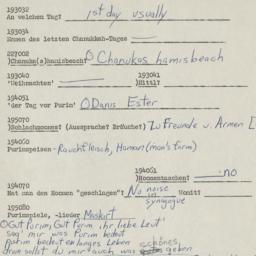 193032
An welchem Tag? 1st day usually
193034
Namen des letzten Chanukkah-Tages
227002
Chanuk(a)hamisbeach? O Chanukas hamisbeach
193040 193041
'Weihnachten' Nittl?
194051
'der Tag vor Purim' O Danis Ester
195070
Schlachmones? (Aussprache? Bräuche?) Zu Freunde u. Armen [
194060
Purimspeisen - Rauchfleisch, Haman (man's form)
194061
Homentaschen? no
194070
Hat man den Homen "geschlagen"? No noise in synagogue Womit?
195080
Purimspiele, -lieder Maskirt
O Gut Purim, Gut Purim, ihr liebe Leut'
sag' mir was Purim bedeut
Purim bedeut en langes Leben schönes,
drum sollst du mir auch was geben